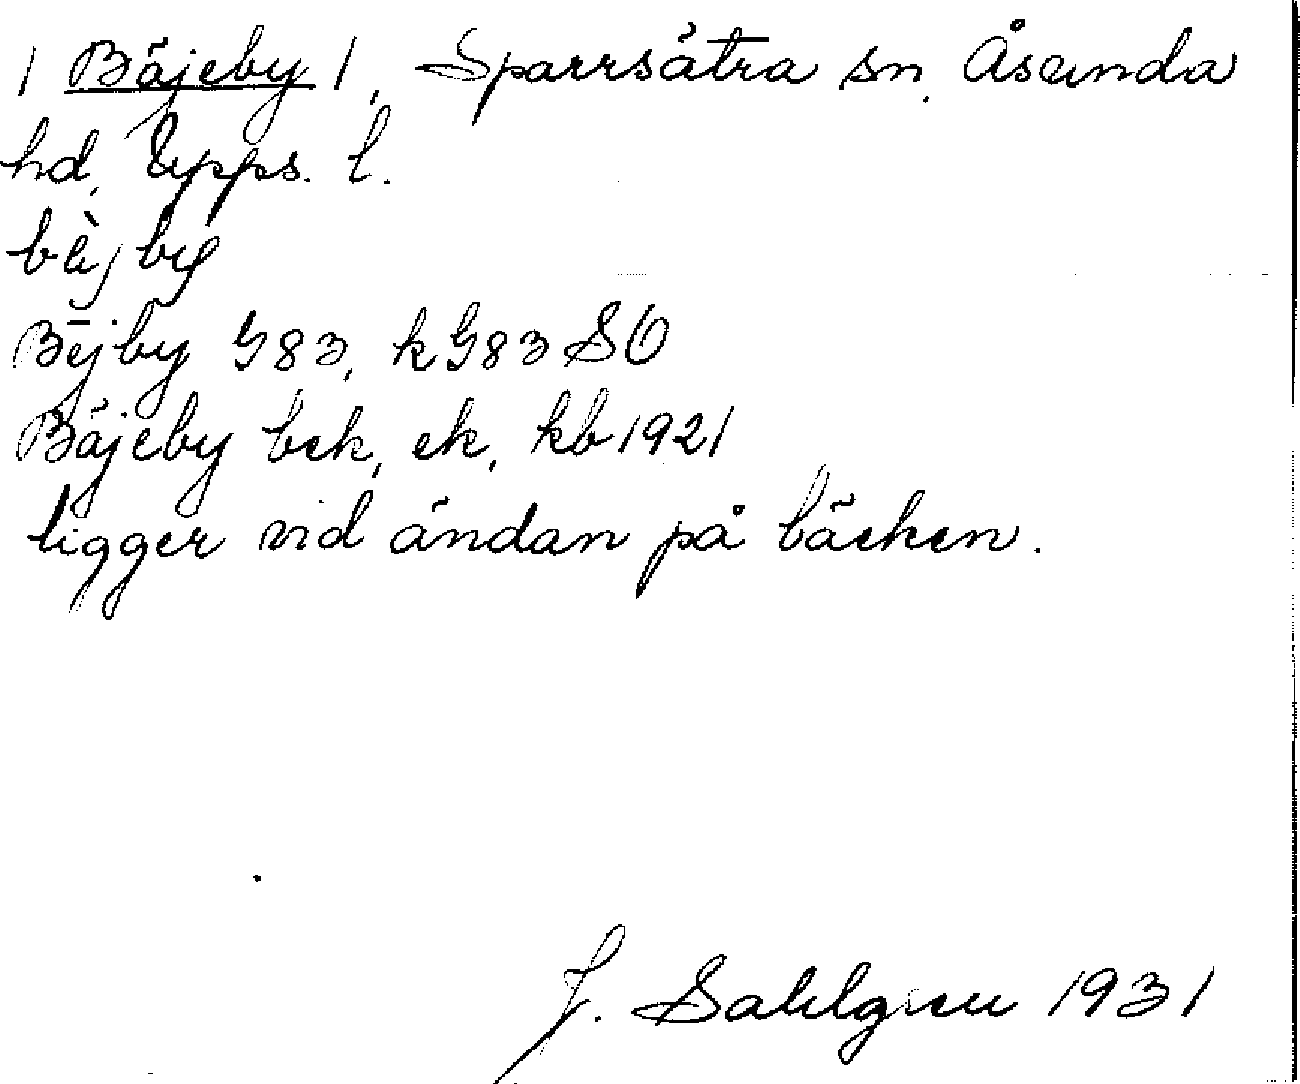 / Bäjeby /, Sparrsätra sn, Åsunda
hd, Upps. l.
bäjby
Bejby G83, kG83 SO
Bäjeby bek, ek, kb 1921
ligger vid ändan på bäcken.
J. Sahlgren 1931